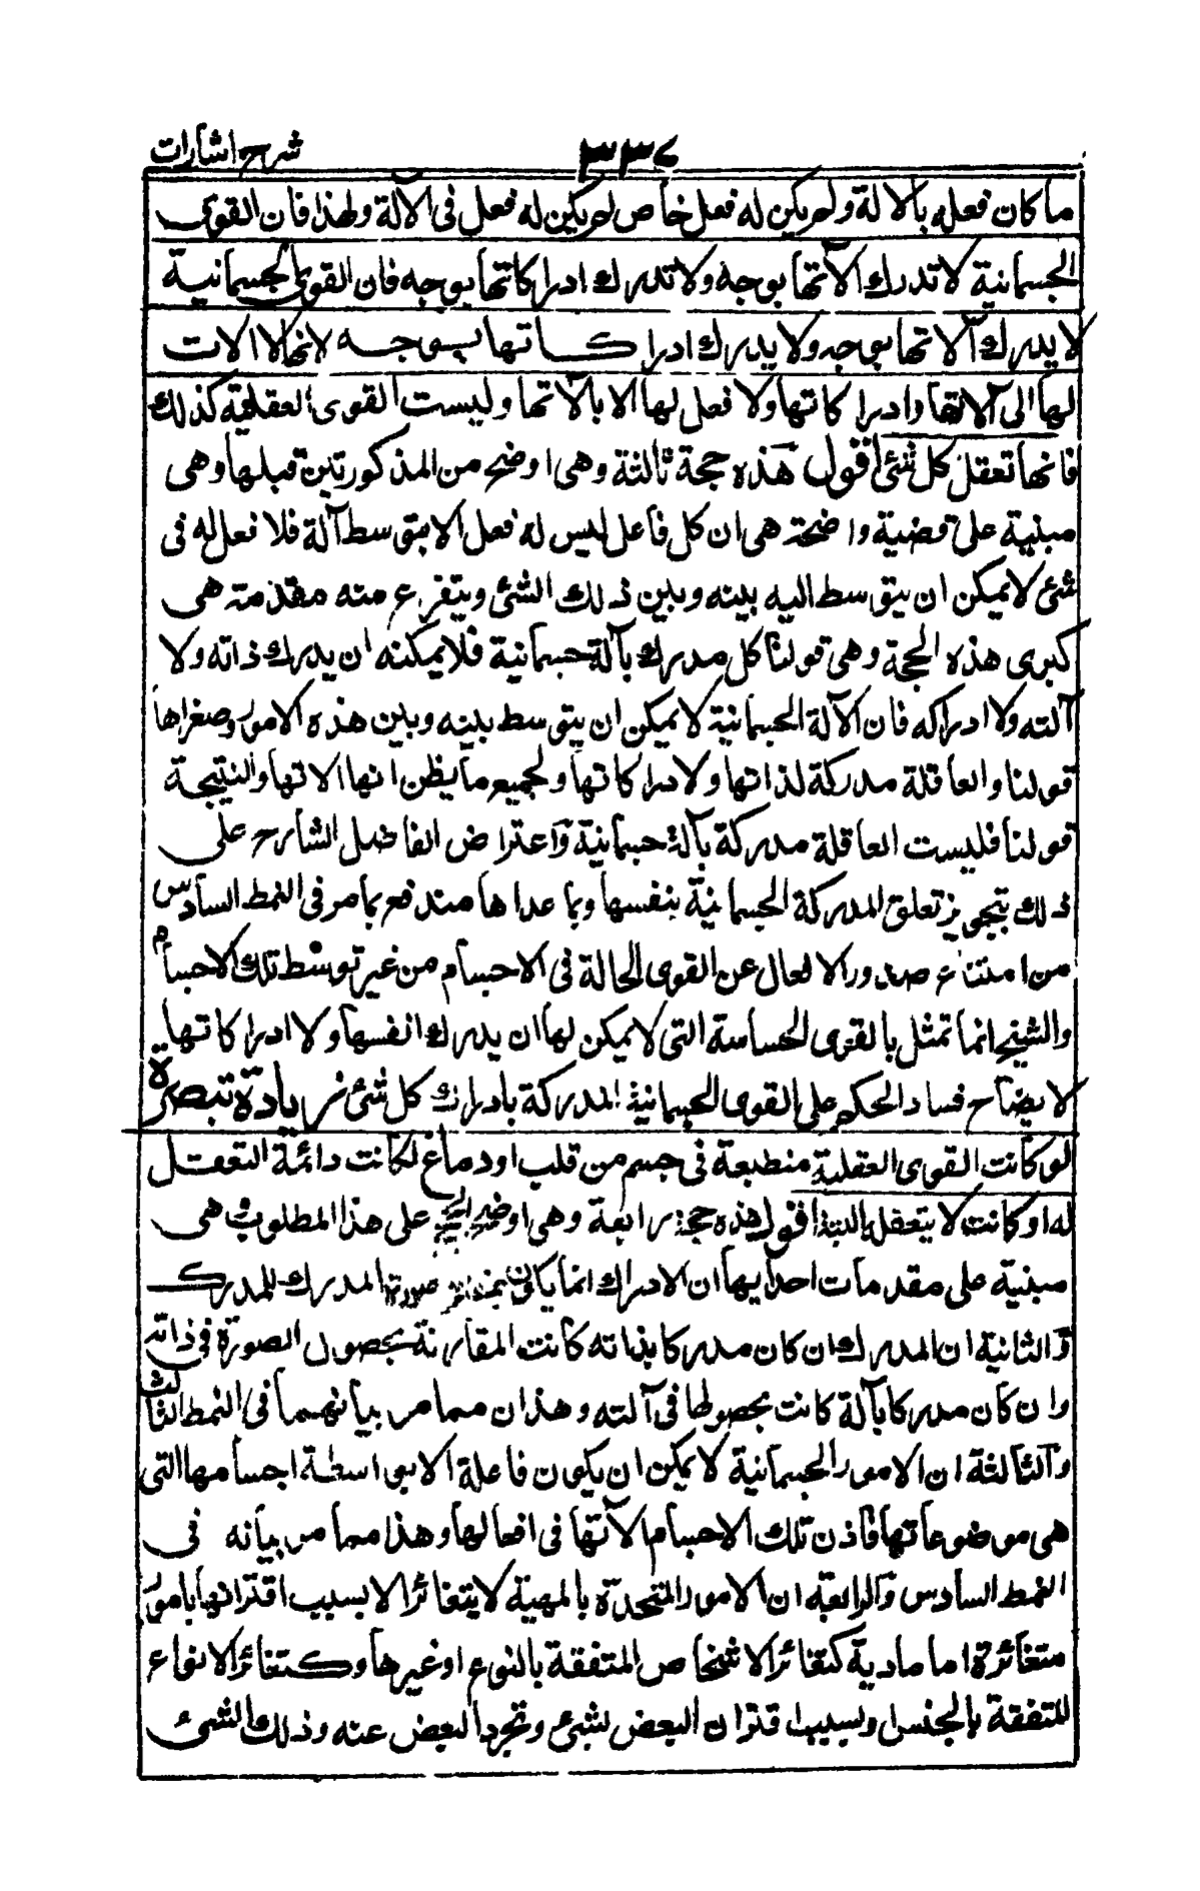 شرح اشارات
٣٣٤
ما كان فعله بالالة ولم يكن له فعل خاص لم يكن له فعل فى الآلة ولهذا فان القوى
الجسمانية لا تدرك الآتها بوجه ولا تدرك ادراكاتها بوجه فان القوى الجسمانية
لا يدرك آلاتها بوجه ولا يدرك ادراكاتها بوجه لانها لا الات
لها الى آلاتها وادراكاتها ولا فعل لها الا بآلاتها وليست القوى العقلية كذلك
فانها تعقل كل شئ اقول هذه حجة ثالثة وهى اوضح من المذكورتين قبلها وهى
مبنية على قضية واضحة هى ان كل فاعل ليس له فعل الا بتوسط آلة فلا فعل له فى
شئ لا يمكن ان يتوسط اليه بينه وبين ذلك الشئ ويتفرع منه مقدمته هى
كبرى هذه الحجة وهى قولنا كل مدرك بآلة جسمانية فلا يمكنه ان يدرك ذاته ولا
آلته ولا ادراكه فان الآلة الجسمانية لا يمكن ان يتوسط بينه وبين هذه الامور وصغراها
قولنا والعاقلة مدركة لذاتها ولادراكاتها ولجميع ما يظن انها الاتها والنتيجة
قولنا فليست العاقلة مدركة بآلة جسمانية واعتراض الفاضل الشارح على
ذلك بتجويز تعلق المدركة الجسمانية بنفسها وبما عداها مندفع بما مر فى النمط السادس
من امتناع صدور الافعال عن القوى الحالة فى الاجسام من غير توسط تلك الاجسام
والشيخ انما تمثل بالقوى الحساسة التى لا يمكن لها ان يدرك انفسها ولا ادراكاتها
لايضاح فساد الحكم على القوى الجسمانية المدركة بادراك كل شئ زيادة تبصرة
لو كانت القوى العقلية منطبعة فى جسم من قلب او دماغ لكانت دائمة التعقل
له او كانت لا يتعقله البتة اقول هذه حجة رابعة وهى اوضح الحجج على هذا المطلوب هى
مبنية على مقدمات احدايها ان الادراك انما يكون بمقارنة صورة المدرك للمدرك
والثانية ان المدرك ان كان مدركا بذاته كانت المقارنة بحصول الصورة فى ذاته
وان كان مدركا بآلة كانت بحصولها فى آلته وهذان مما مر بيانهما فى النمط الثالث
والثالثة ان الامور الجسمانية لا يمكن ان يكون فاعلة الا بواسطة اجسامها التى
هى موضوعاتها فاذن تلك الاجسام آلاتها فى افعالها وهذا مما مر بيانه فى
النمط السادس والرابعة ان الامور المتحدة بالمهية لا يتغائر الا بسبب اقترانها بامور
متغائرة اما مادية كتغائر الاشخاص المتفقة بالنوع او غيرها وكتغائر الانواع
المتفقة بالجنس او بسبب اقتران البعض بشئ وتجرد البعض عنه وذلك الشئ